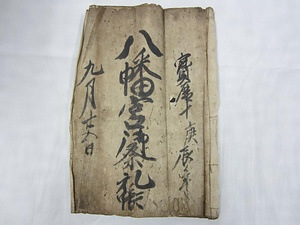 寳暦十庚辰年
八幡宮御祭礼帳
九月吉日